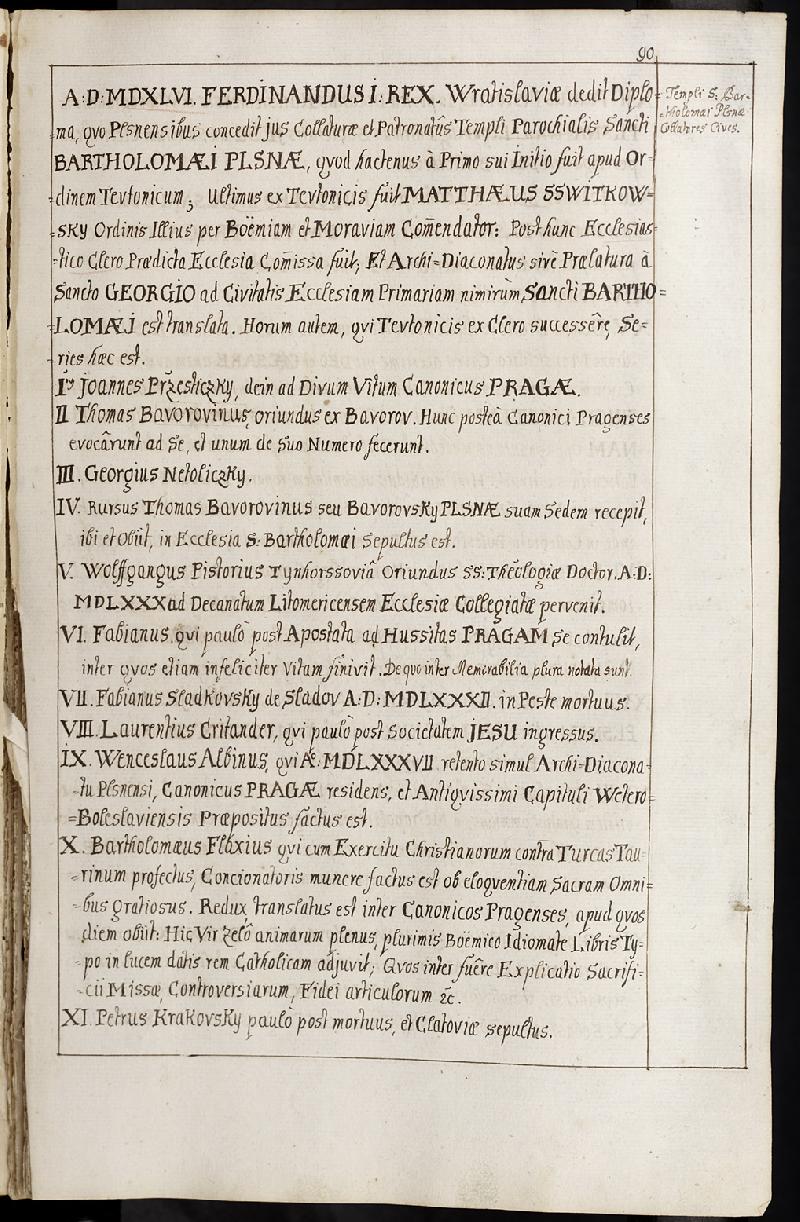 90
A: D: MDXLVI. FERDINANDUS I. REX. Wratislaviæ dedit Diplo=
=ma, qvo Plsnensibus concedit jus Collaturæ et Patronatûs Templi Parochialis Sancti
BARTHOLOMÆI PLSNÆ, qvod hactenus à Primo sui Initio fuit apud Or=
=dinem Tevtonicum; Ultimus ex Tevtonicis fuit MATTHÆUS SSWITKOW=
=SKY Ordinis Illius per Boëmiam et Moraviam Com̃endator: Post hunc Ecclesias=
=tico Clero Prædicta Ecclesia Com̃issa fuit; Et Archi=Diaconatus sivè Prælatura à
Sancto GEORGIO ad Civitatis Ecclesiam Primariam nimirùm Sancti BARTHO=
=LOMÆI est translata. Horum autem, qvi Tevtonicis ex Clero successêre, Se=
=ries hæc est.
Templi S: Bar=
=tholomæi Plsnæ
Collatores Cives.
I. Joannes Przessticzky, dein ad Divum Vitum Canonicus PRAGÆ.
II Thomas Bavorovinus, oriundus ex Bavorov. Hunc posteà Canonici Pragenses
evocârunt ad se, et unum de Suo Numero fecerunt.
III. Georgius Netoliczky.
IV. Rursus Thomas Bavorovinus seu Bavorovsky PLSNÆ suam Sedem recepit,
ibi et Obiit, in Ecclesia S: Bartholomæi Sepultus est.
V. Wolffgangus Pistorius Tynhorssoviâ Oriundus SS: Theologiæ Doctor. A: D:
MDLXXX ad Decanatum Litomericensem Ecclesiæ Collegiatæ pervenit.
VI. Fabianus, qvi paulò post Apostata ad Hussitas PRAGAM se contulit,
inter qvos etiam infeliciter Vitam finivit. De quo inter Memorabilia plura notata sunt.
VII. Fabianus Sladkovsky de Sladov A: D: MDLXXXII. in Peste mortuus.
VIII. Laurentius Critander, qvi paulò post Societatem JESU ingressus.
IX. Wenceslaus Albinus, qvi Aº: MDLXXXVII. retento simul Archi=Diacona=
=tu Plsnensi, Canonicus PRAGÆ residens, et Antiqvissimi Capituli Wetero=
=Boleslaviensis Præpositus factus est.
X. Bartholomæus Flexius qvi cum Exercitu Christianorum contra Turcas Tau=
=rinum profectus, Concionatoris munere factus est ob eloqventiam Sacram Omni=
=bus gratiosus. Redux translatus est inter Canonicos Pragenses, apud qvos
diem obiit: Hic Vir zelô animarum plenus, plurimis Boëmico Idiomate Libris Ty=
=po in lucem datis rem Catholicam adjuvit; Qvos inter fuêre Explicatio Sacrifi=
=cii Missæ, Controversiarum, Fidei articulorum &c.
XI. Petrus Krakovsky paulò post mortuus, et Clatoviæ sepultus.